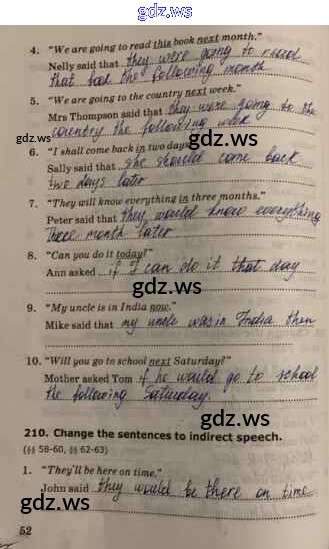 gdz.ws
4. "We are going to read this book next month."
Nelly said that they were going to read
that book the following month
5. "We are going to the country next week."
gdz.ws
Mrs Thompson said that they were going to the
country the following week
6. "I shall come back in two days."
Sally said that she should come back
two days later
7. "They will know everything in three months."
Peter said that they would know everything
three month later
8. "Can you do it today?"
Ann asked if I can do it that day
9. "My uncle is in India now."
Mike said that my uncle was in India then
10. "Will you go to school next Saturday?"
Mother asked Tom if he would go to school
the following Saturday.
gdz.ws
210. Change the sentences to indirect speech.
(§§ 58-60, §§ 62-63)
1. "They'll be here on time."
John said they would be there on time
gdz.ws
52